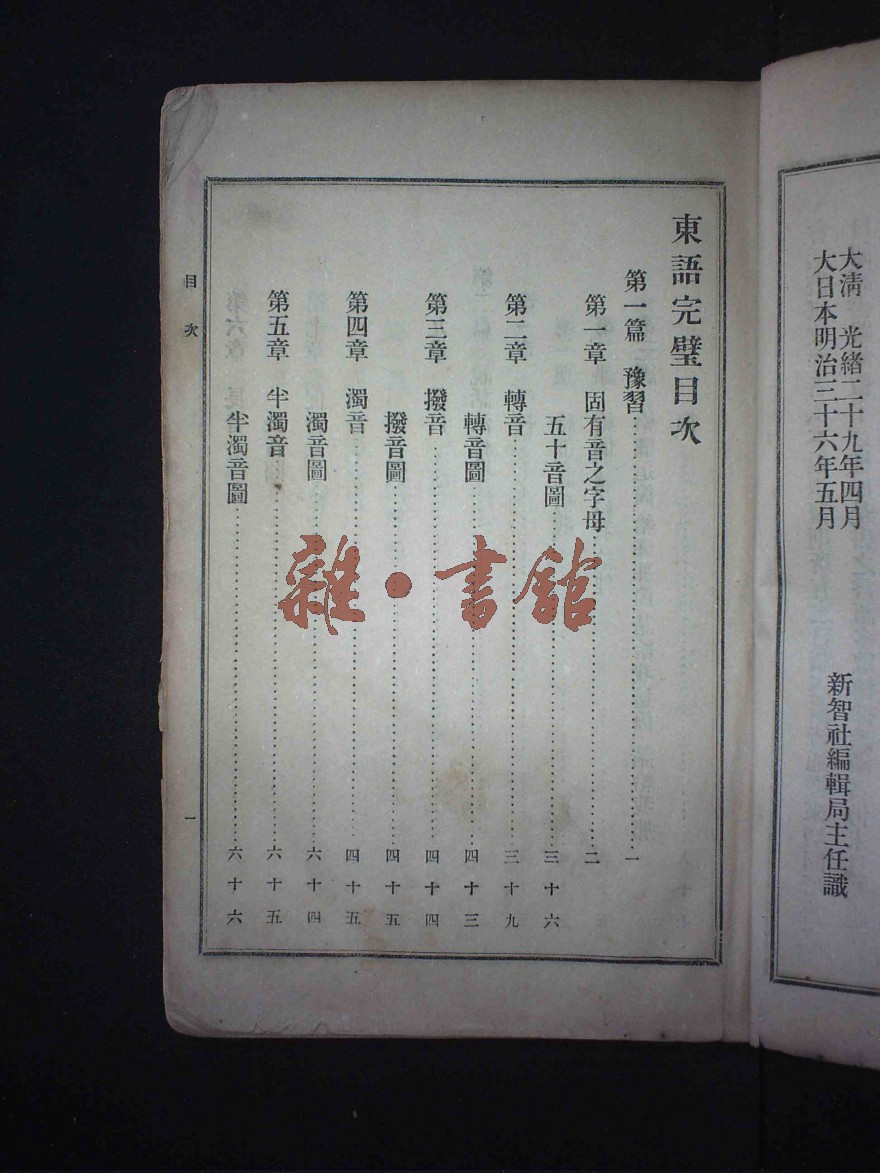 大清 光緒二十九年四月
大日本明治三十六年五月
新智社編輯局主任識
東語完璧目次
第一篇 豫習……一
第一章 固有音之字母……二
五十音圖……三十六
第二章 轉音……三十九
轉音圖……四十三
第三章 撥音……四十四
撥音圖……四十五
第四章 濁音……四十五
濁音圖……六十四
第五章 半濁音……六十五
半濁音圖……六十六
目次
一
雜·書館